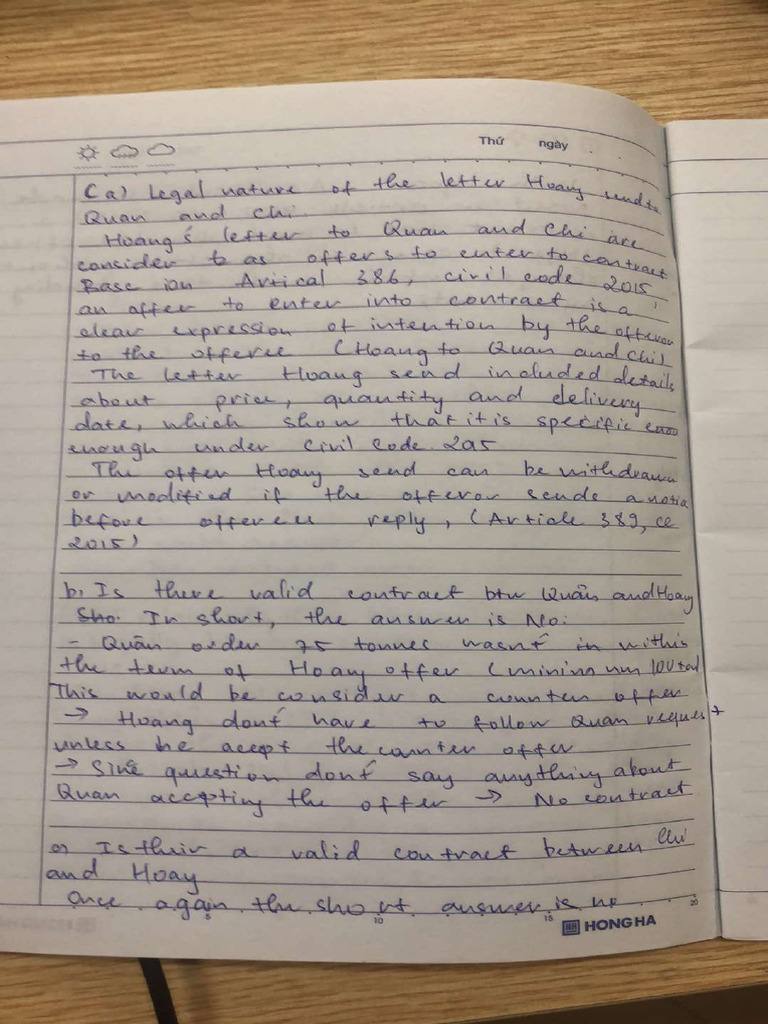 Thứ ngày
C a) Legal nature of the letter Hoang send to
Quan and Chi.
Hoang's letter to Quan and Chi are
consider to as offers to enter to contract
Base ion Artical 386, civil code 2015,
an offer to enter into contract is a
clear expression of intention by the offeror
to the offeree (Hoang to Quan and Chi)
The letter Hoang send included details
about price, quantity and delivery
date, which show that it is specific
enough under Civil Code 2015
The offer Hoang send can be withdrawn
or modified if the offeror sends a notice
before offerees reply, (Article 389, cc
2015)
b, Is there valid contract btw Quân and Hoang
Sho. In short, the answer is No.
- Quân order 75 tonnes wasn't in within
the term of Hoang offer (minimum 100 ton)
This would be consider a counter offer
→ Hoang don't have to follow Quan request
unless he acept the counter offer
→ Sine question don't say anything about
Quan accepting the offer → No contract
c, Is their a valid contract between Chi
and Hoay
Once again the short answer is no
5 10 15 20
HONG HA